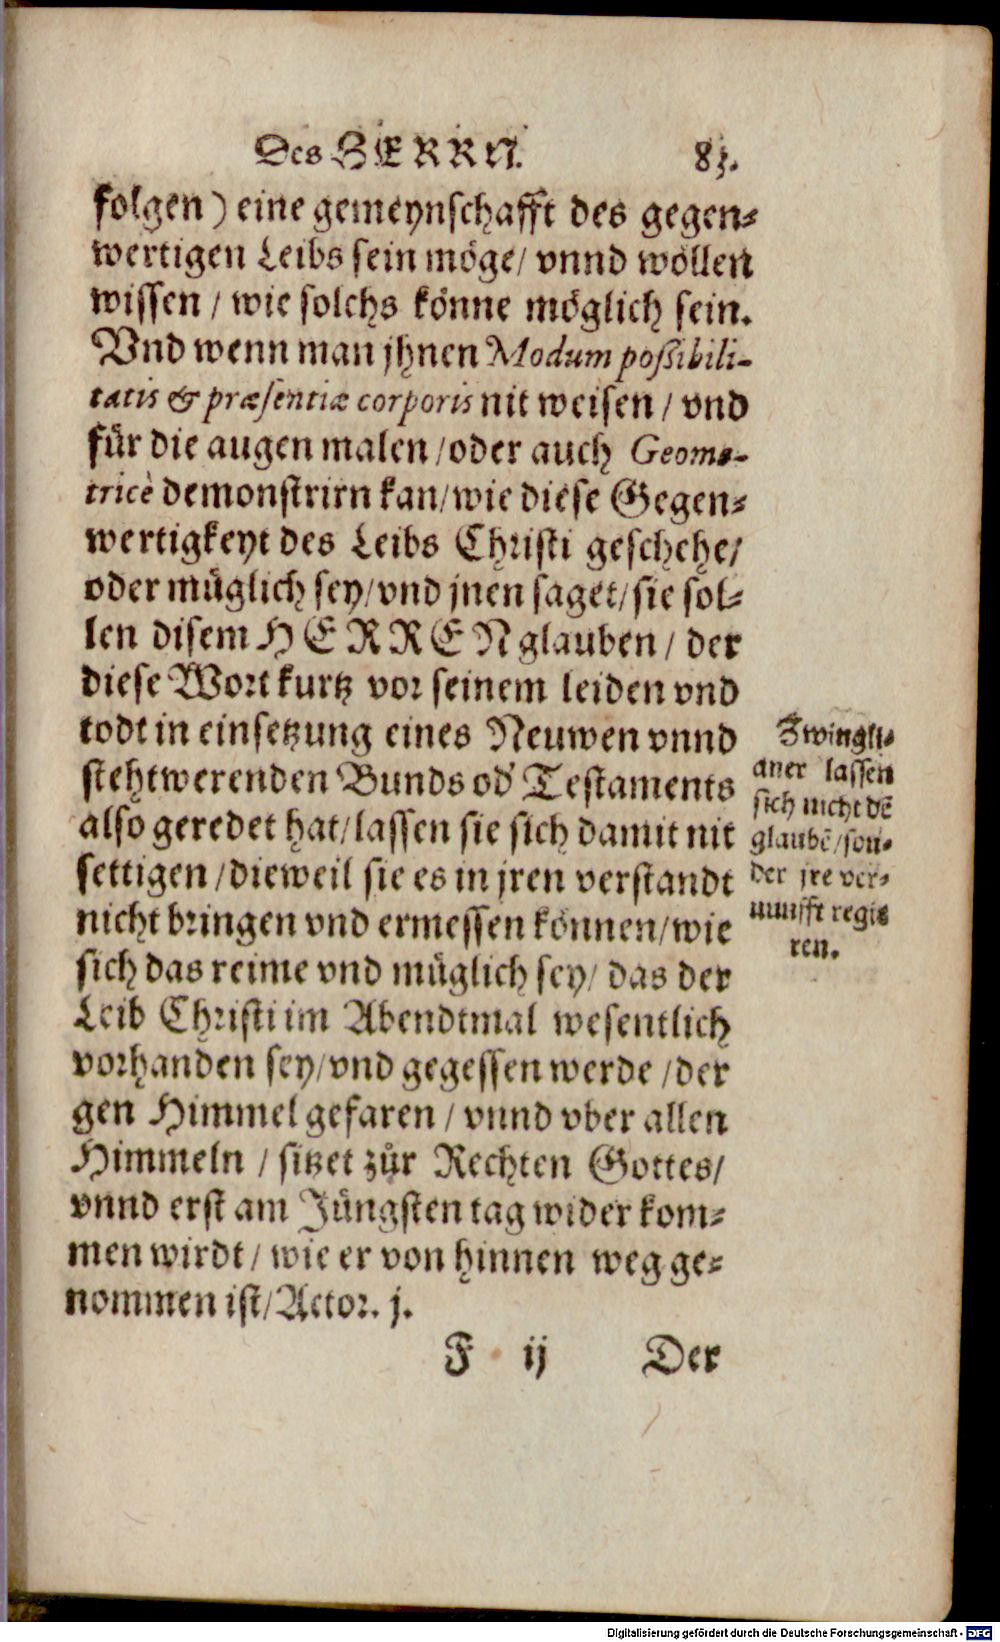 Des HERRN. 83.
folgen) eine gemeynschafft des gegen-
wertigen Leibs sein möge/ vnnd wöllen
wissen / wie solchs könne möglich sein.
Vnd wenn man jhnen Modum possibili-
tatis & præsentiæ corporis nit weisen / vnd
für die augen malen /oder auch Geome-
tricè demonstrirn kan/wie diese Gegen-
wertigkeyt des Leibs Christi geschehe/
oder müglich sey/vnd jnen saget/sie sol-
len disem HERREN glauben / der
diese Wort kurtz vor seinem leiden vnd
todt in einsetzung eines Neuwen vnnd
stehtwerenden Bunds od' Testaments
also geredet hat/lassen sie sich damit nit
settigen /dieweil sie es in jren verstandt
nicht bringen vnd ermessen können/wie
sich das reime vnd müglich sey/ das der
Leib Christi im Abendtmal wesentlich
vorhanden sey/vnd gegessen werde /der
gen Himmel gefaren / vnnd vber allen
Himmeln / sitzet zůr Rechten Gottes/
vnnd erst am Jüngsten tag wider kom-
men wirdt / wie er von hinnen weg ge-
nommen ist/Actor. j.
Zwingli-
aner lassen
sich nicht dē
glaubē/son-
der jre ver-
nunfft regie
ren.
F ij Der
Digitalisierung gefördert durch die Deutsche Forschungsgemeinschaft - DFG